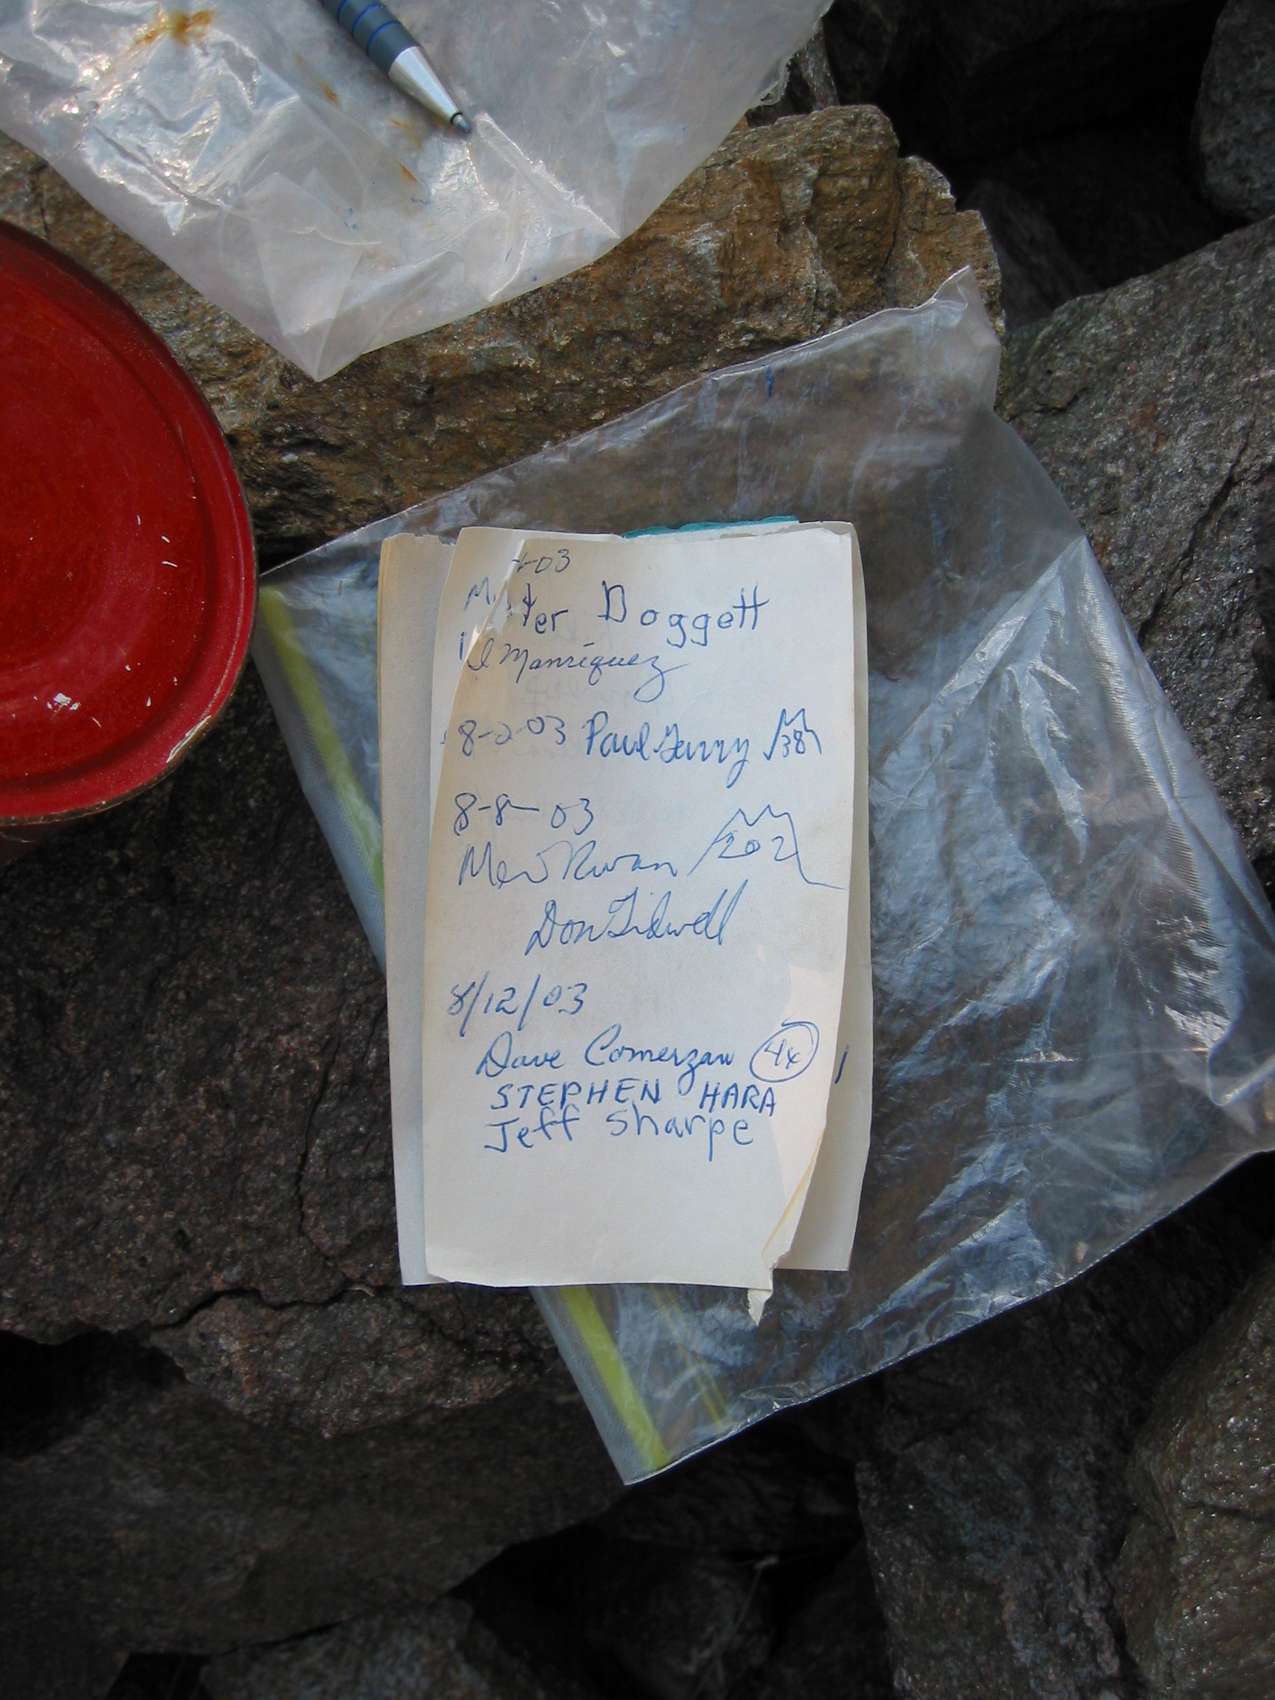 -03
Doggett
Manriquez
8-2-03 Paul 38
8-8-03
202
Don Tidwell
8/12/03
Dave Comerzan 4x
STEPHEN HARA
Jeff Sharpe